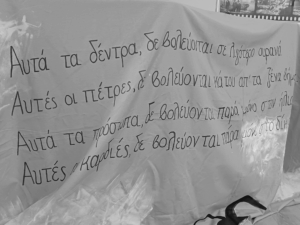 Αυτά τα δέντρα, δε βολεύονται σε λιγότερο ουρανό
Αυτές οι πέτρες, δε βολεύονται κάτου απ' τα ξένα
Αυτά τα πρόσωπα, δε βολεύονται παρά μόνο στον ήλιο
Αυτές καρδιές, δε βολεύονται παρά μόνο στο